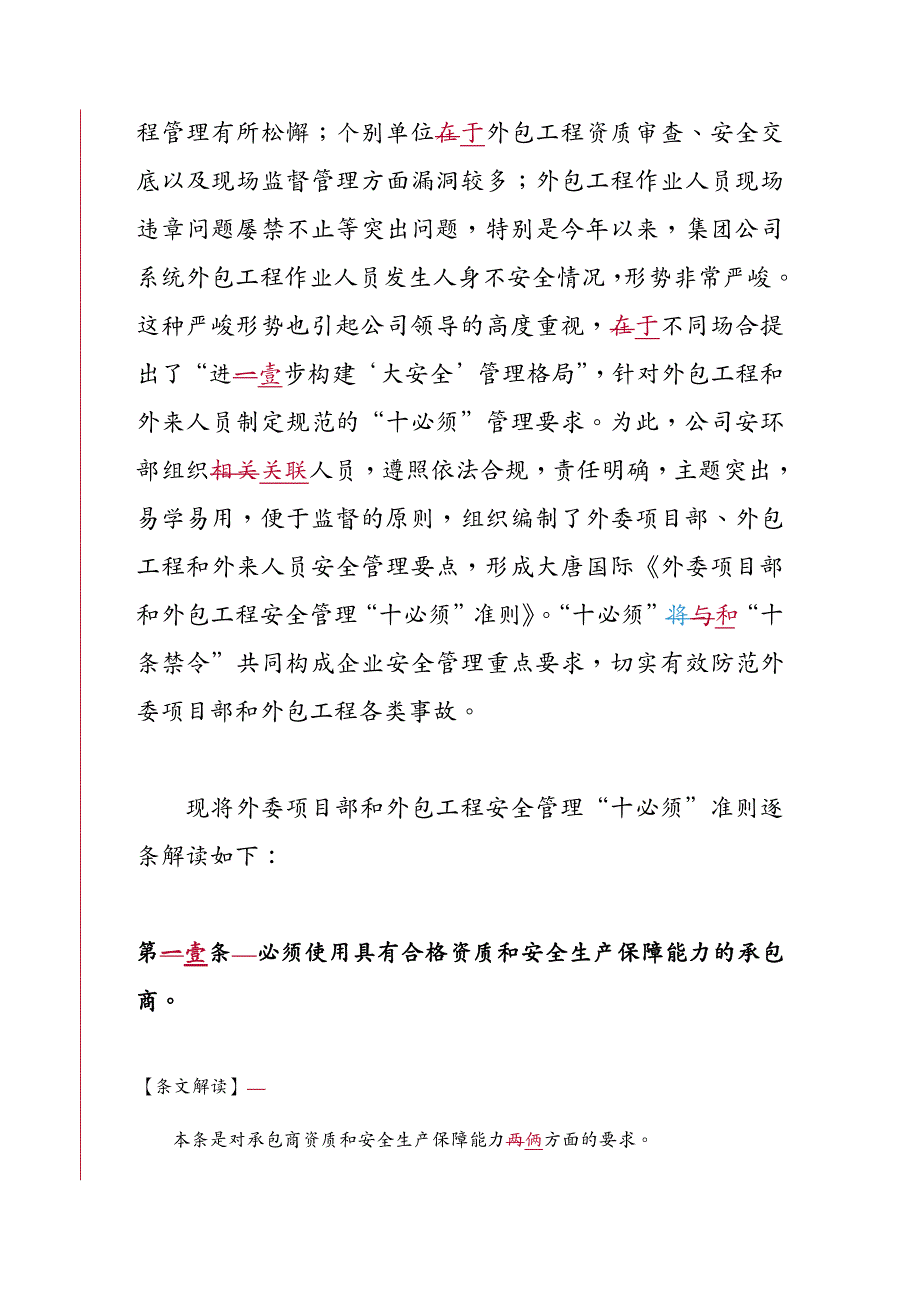 程管理有所松懈；个别单位在于外包工程资质审查、安全交
底以及现场监督管理方面漏洞较多；外包工程作业人员现场
违章问题屡禁不止等突出问题，特别是今年以来，集团公司
系统外包工程作业人员发生人身不安全情况，形势非常严峻。
这种严峻形势也引起公司领导的高度重视，在于不同场合提
出了“进一壹步构建‘大安全’管理格局”，针对外包工程和
外来人员制定规范的“十必须”管理要求。为此，公司安环
部组织相关关联人员，遵照依法合规，责任明确，主题突出，
易学易用，便于监督的原则，组织编制了外委项目部、外包
工程和外来人员安全管理要点，形成大唐国际《外委项目部
和外包工程安全管理“十必须”准则》。“十必须”将与和“十
条禁令”共同构成企业安全管理重点要求，切实有效防范外
委项目部和外包工程各类事故。
现将外委项目部和外包工程安全管理“十必须”准则逐
条解读如下：
第一壹条 必须使用具有合格资质和安全生产保障能力的承包
商。
【条文解读】
本条是对承包商资质和安全生产保障能力两俩方面的要求。